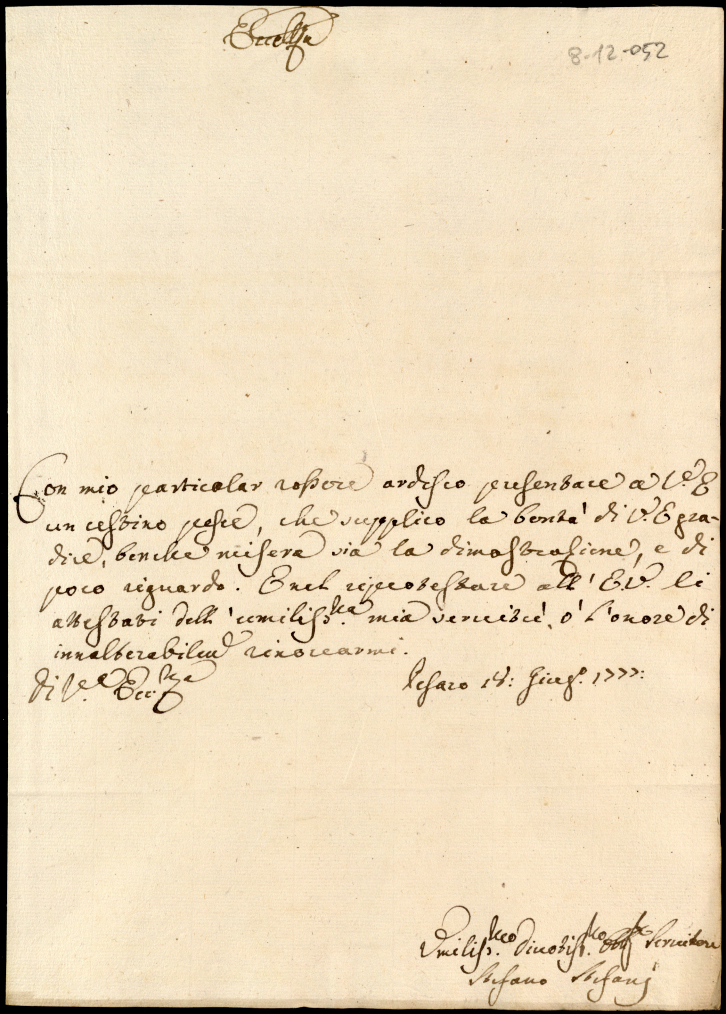 Eccellza
8-12-052
Con mio particolar rossore ardisco presentare a V.ª E
un cestino pesce, che supplico la bontà di V.ª E gra-
dire, benche misera sia la dimostrasione, e di
poco riguardo. E nel riprotestare all' E.V. li
attestati dell' umiliss.ma mia servitù, ò l'onore di
innalterabilme rinovarmi.
Di V.ª Ecc.za
Pesaro 18: Giug.º 1777:
Umiliss.mo Divotiss.mo Obb.mo Servitore
Stefano Stefanj